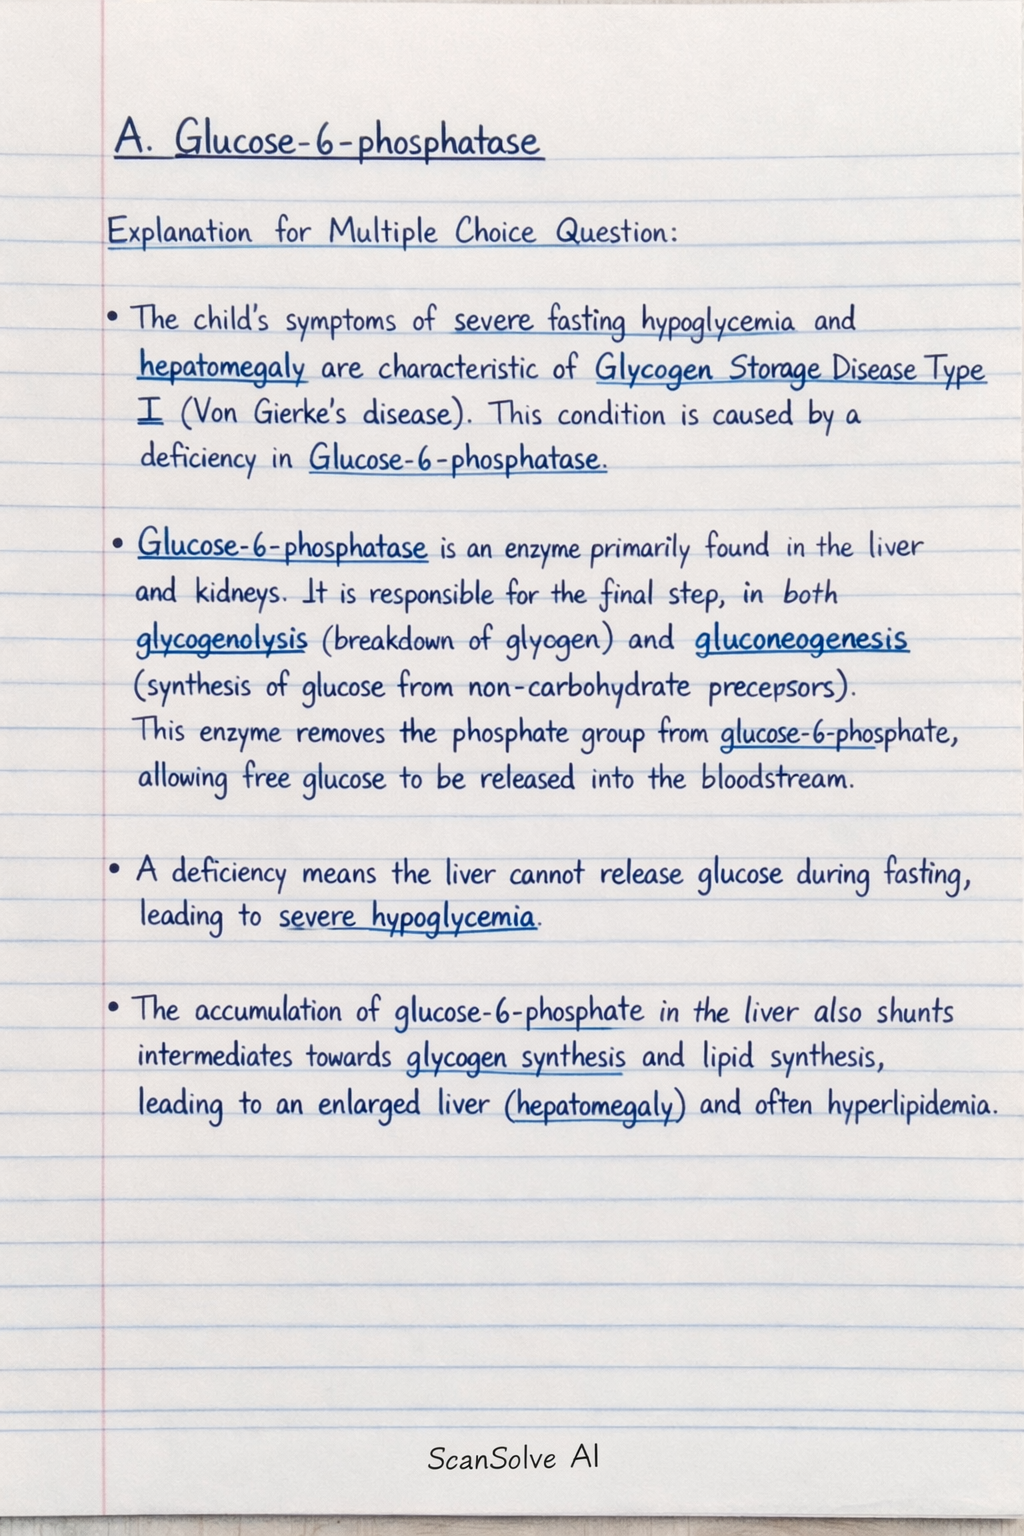 A. Glucose-6-phosphatase
Explanation for Multiple Choice Question:
• The child's symptoms of severe fasting hypoglycemia and
hepatomegaly are characteristic of Glycogen Storage Disease Type
I (Von Gierke's disease). This condition is caused by a
deficiency in Glucose-6-phosphatase.
• Glucose-6-phosphatase is an enzyme primarily found in the liver
and kidneys. It is responsible for the final step, in both
glycogenolysis (breakdown of glyogen) and gluconeogenesis
(synthesis of glucose from non-carbohydrate precepsors).
This enzyme removes the phosphate group from glucose-6-phosphate,
allowing free glucose to be released into the bloodstream.
• A deficiency means the liver cannot release glucose during fasting,
leading to severe hypoglycemia.
• The accumulation of glucose-6-phosphate in the liver also shunts
intermediates towards glycogen synthesis and lipid synthesis,
leading to an enlarged liver (hepatomegaly) and often hyperlipidemia.
ScanSolve AI